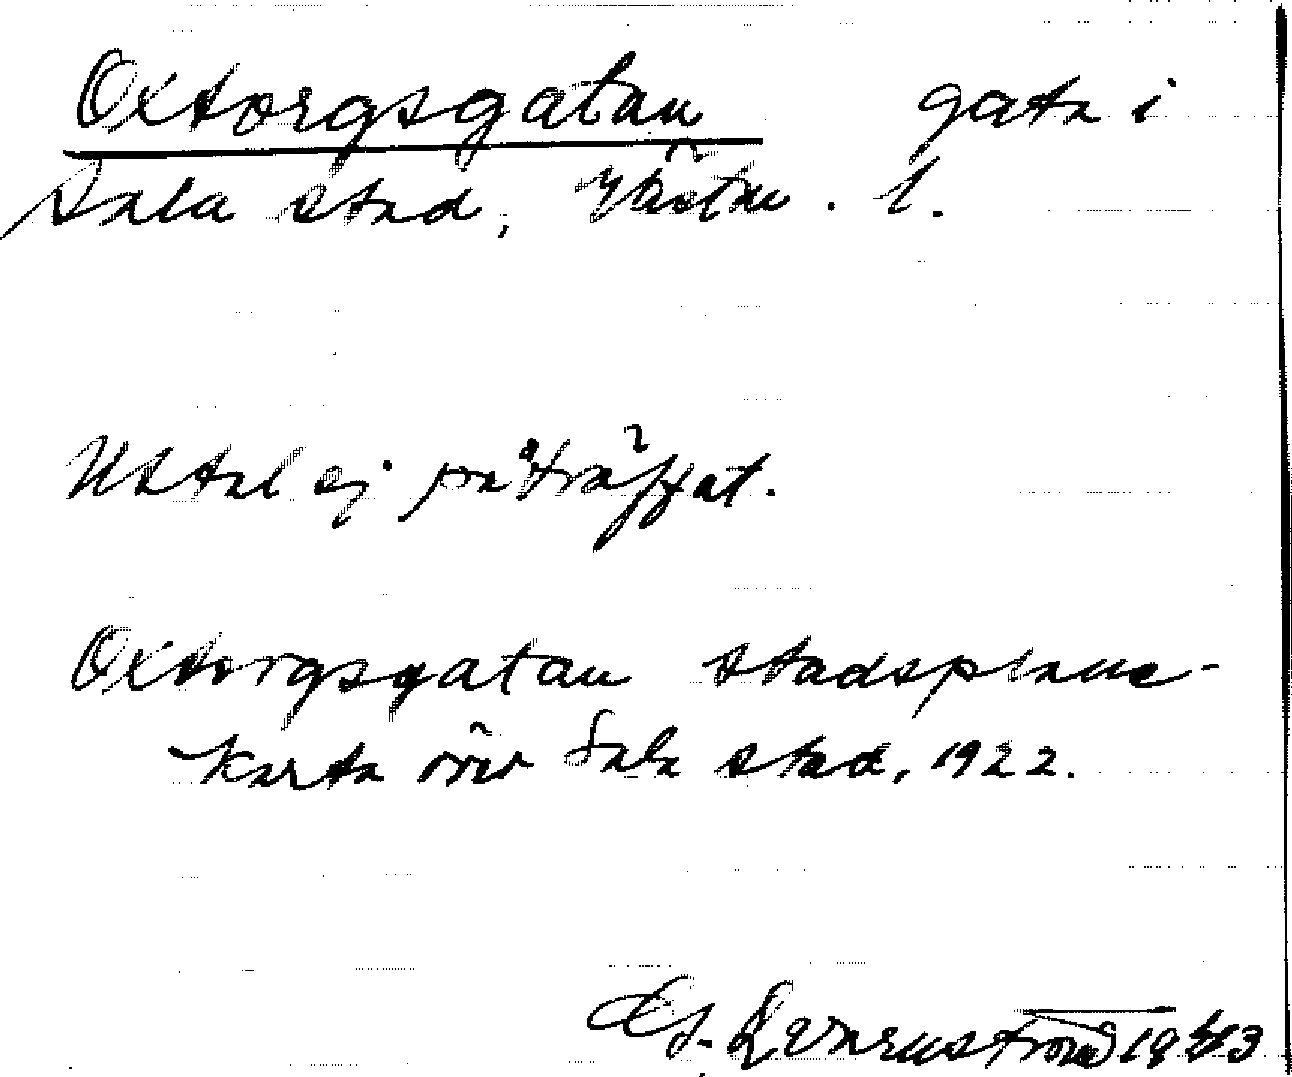 Oxtorgsgatan gata i
Sala stad, Västm. l.
Uttal ej påträffat.
Oxtorgsgatan stadsplane-
karta över Sala stad, 1922.
1943